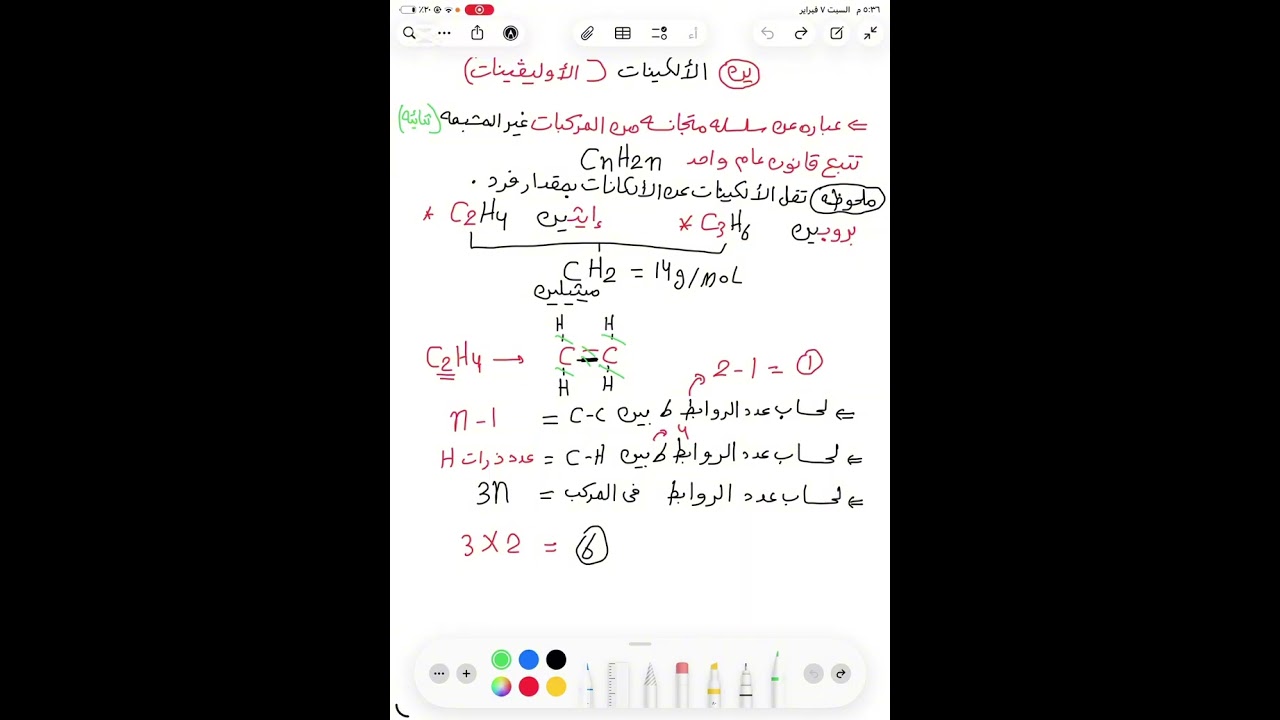 ٥:٣٦ م السبت ٧ فبراير
٪٢٠
ين الألكينات (الأوليفينات)
⇐ عباره عن سلسله متجانسه من المركبات غير المشبعه (ثنائيه)
تتبع قانون عام واحد CnH2n
ملحوظه تقل الألكينات عن الألكانات بمقدار فرد .
* C2H4 إيثين * C3H6 بروبين
CH2 = 14g/moL
ميثيلين
H H
C2H4 → C = C
H H
2 - 1 = 1
⇐ لحساب عدد الروابط б بين C-C = n - 1
4
⇐ لحساب عدد الروابط б بين C-H = عدد ذرات H
⇐ لحساب عدد الروابط فى المركب = 3n
3 X 2 = 6